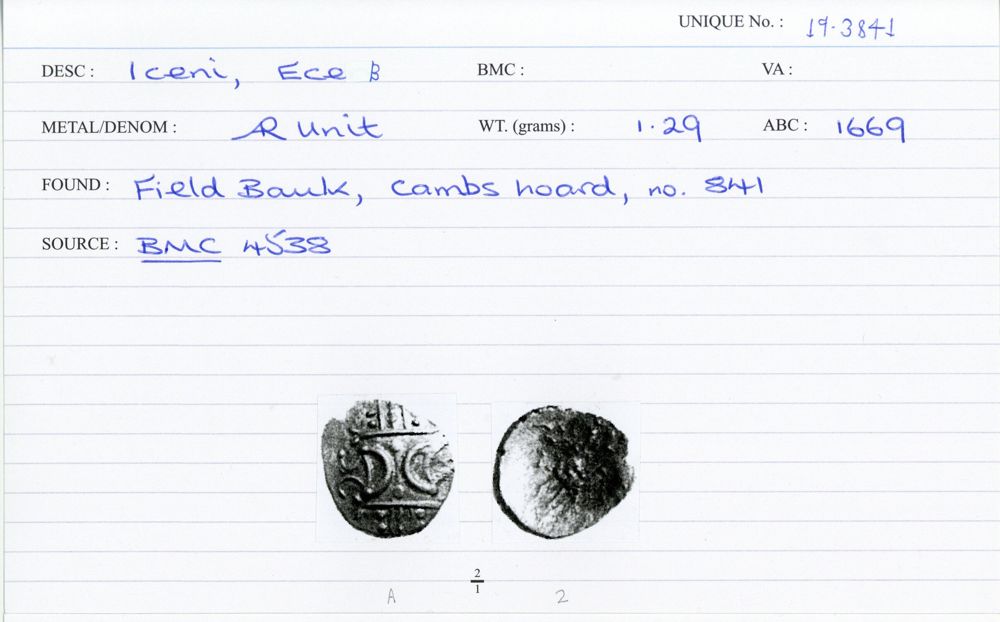 UNIQUE No. : 19.3841
DESC : Iceni, Ece B BMC : VA :
METAL/DENOM : AR Unit WT. (grams) : 1.29 ABC : 1669
FOUND : Field Baulk, Cambs hoard, no. 841
SOURCE : BMC 4538
2
1
A 2